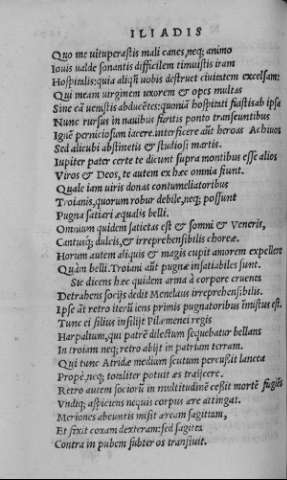 ILIADIS
Quo me uituperastis mali canes, neq; animo
Iouis ualde sonantis difficilem timuistis iram
Hospitalis: quia aliqñ uobis destruet ciuitatem excelsam:
Qui meam uirginem uxorem & opes multas
Sine cã uenistis abducẽtes: quoniã hospitati fuistis ab ipsa
Nunc rursus in nauibus furitis ponto transeuntibus
Ignẽ perniciosum iacere. interficere aũt heroas Achiuos
Sed alicubi abstinetis & studiosi martis.
Iupiter pater certe te dicunt supra montibus esse alios
Viros & Deos, te autem ex hæc omnia fiunt.
Quale iam uiris donas contumeliatoribus
Troianis, quorum robur debile, neq; possunt
Pugna satiari æqualis belli.
Omnium quidem satietas est & somni & Veneris,
Cantusq; dulcis, & irreprehensibilis choreæ.
Horum autem aliquis & magis cupit amorem expellere
Quàm belli. Troiani aũt pugnæ insatiabiles sunt.
Sic dicens hæc quidem arma à corpore cruenta
Detrahens socijs dedit Menelaus irreprehensibilis.
Ipse aũt retro iterũ iens primis pugnatoribus ĩmistus est.
Tunc ei filius insilijt Pilæmenei regis
Harpalium, qui patrẽ dilectum sequebatur bellans
In troiam neq; retro abijt in patriam terram.
Qui tunc Atridæ medium scutum percussit lancea
Propè, neq; tonsliter potuit æs traijcere.
Retro autem sociorũ in multitudinẽ cessit mortẽ fugiẽs
Vndiq; aspiciens nequis corpus ære attingat.
Meriones abeuntis misit æream sagittam,
Et fixit coxam dexteram: sed sagitta
Contra in pubem subter os transiuit.